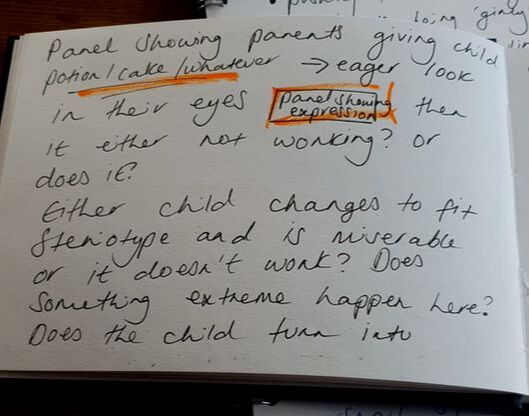 pushing
doing 'girly
Panel showing parents giving child
potion/cake/whatever → eager look
in their eyes Panel showing expression then
it either not working? or
does it?
Either child changes to fit
steriotype and is miserable
or it doesn't work? Does
something extreme happen here?
Does the child turn into